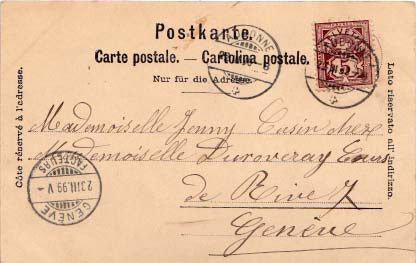 Postkarte.
Carte postale. — Cartolina postale.
Nur für die Adresse.
Côte réservé à l'adresse.
Lato riservato all' indirizzo.
5
Mademoiselle Jenny Cusin chez
Mademoiselle Duroveray Cours
de Rive 7
Genève
GENÈVE
23 III 99 V
FACTEURS